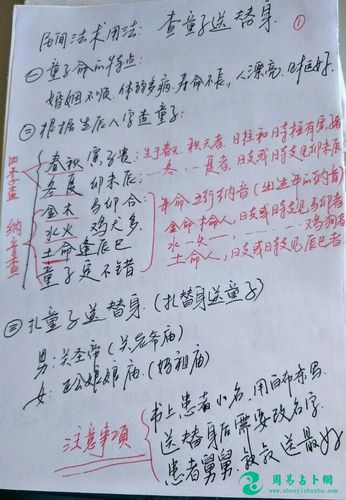 民间法术用法: 查童子送替身. ①
㊀ 童子命的特点:
婚姻不顺. 体弱多病. 寿命不长, 人漂亮, 口才好.
㊁ 根据生辰八字查童子:
四季查
春秋寅子贵: 生于春天、秋天者, 日柱和时柱有寅、子
冬夏卯未辰: 冬、夏者, 日支或时支见卯未辰
纳音查
金木马卯合
水火鸡犬多
土命逢辰巳
童子定不错
年命五行纳音(出生年的纳音)
金命、木命人, 日支或时支见马卯者
水、火 鸡狗者
土命人, 日支或时支见辰巳者
㊂ 扎童子送替身. (扎替身送童子)
男: 关圣帝 (关老爷庙)
女: 娘娘庙. (妈祖庙)
注意事项
书上患者小名, 用白布
送替身后需要改名字.
患者舅舅, 送最好
周易占卜网
www.zhouyizhanbu.com